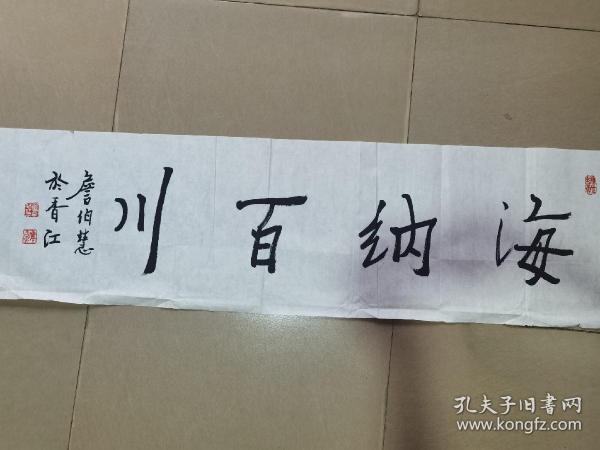 海纳百川
詹伯慧
於香江
孔夫子旧书网
www.kongfz.com